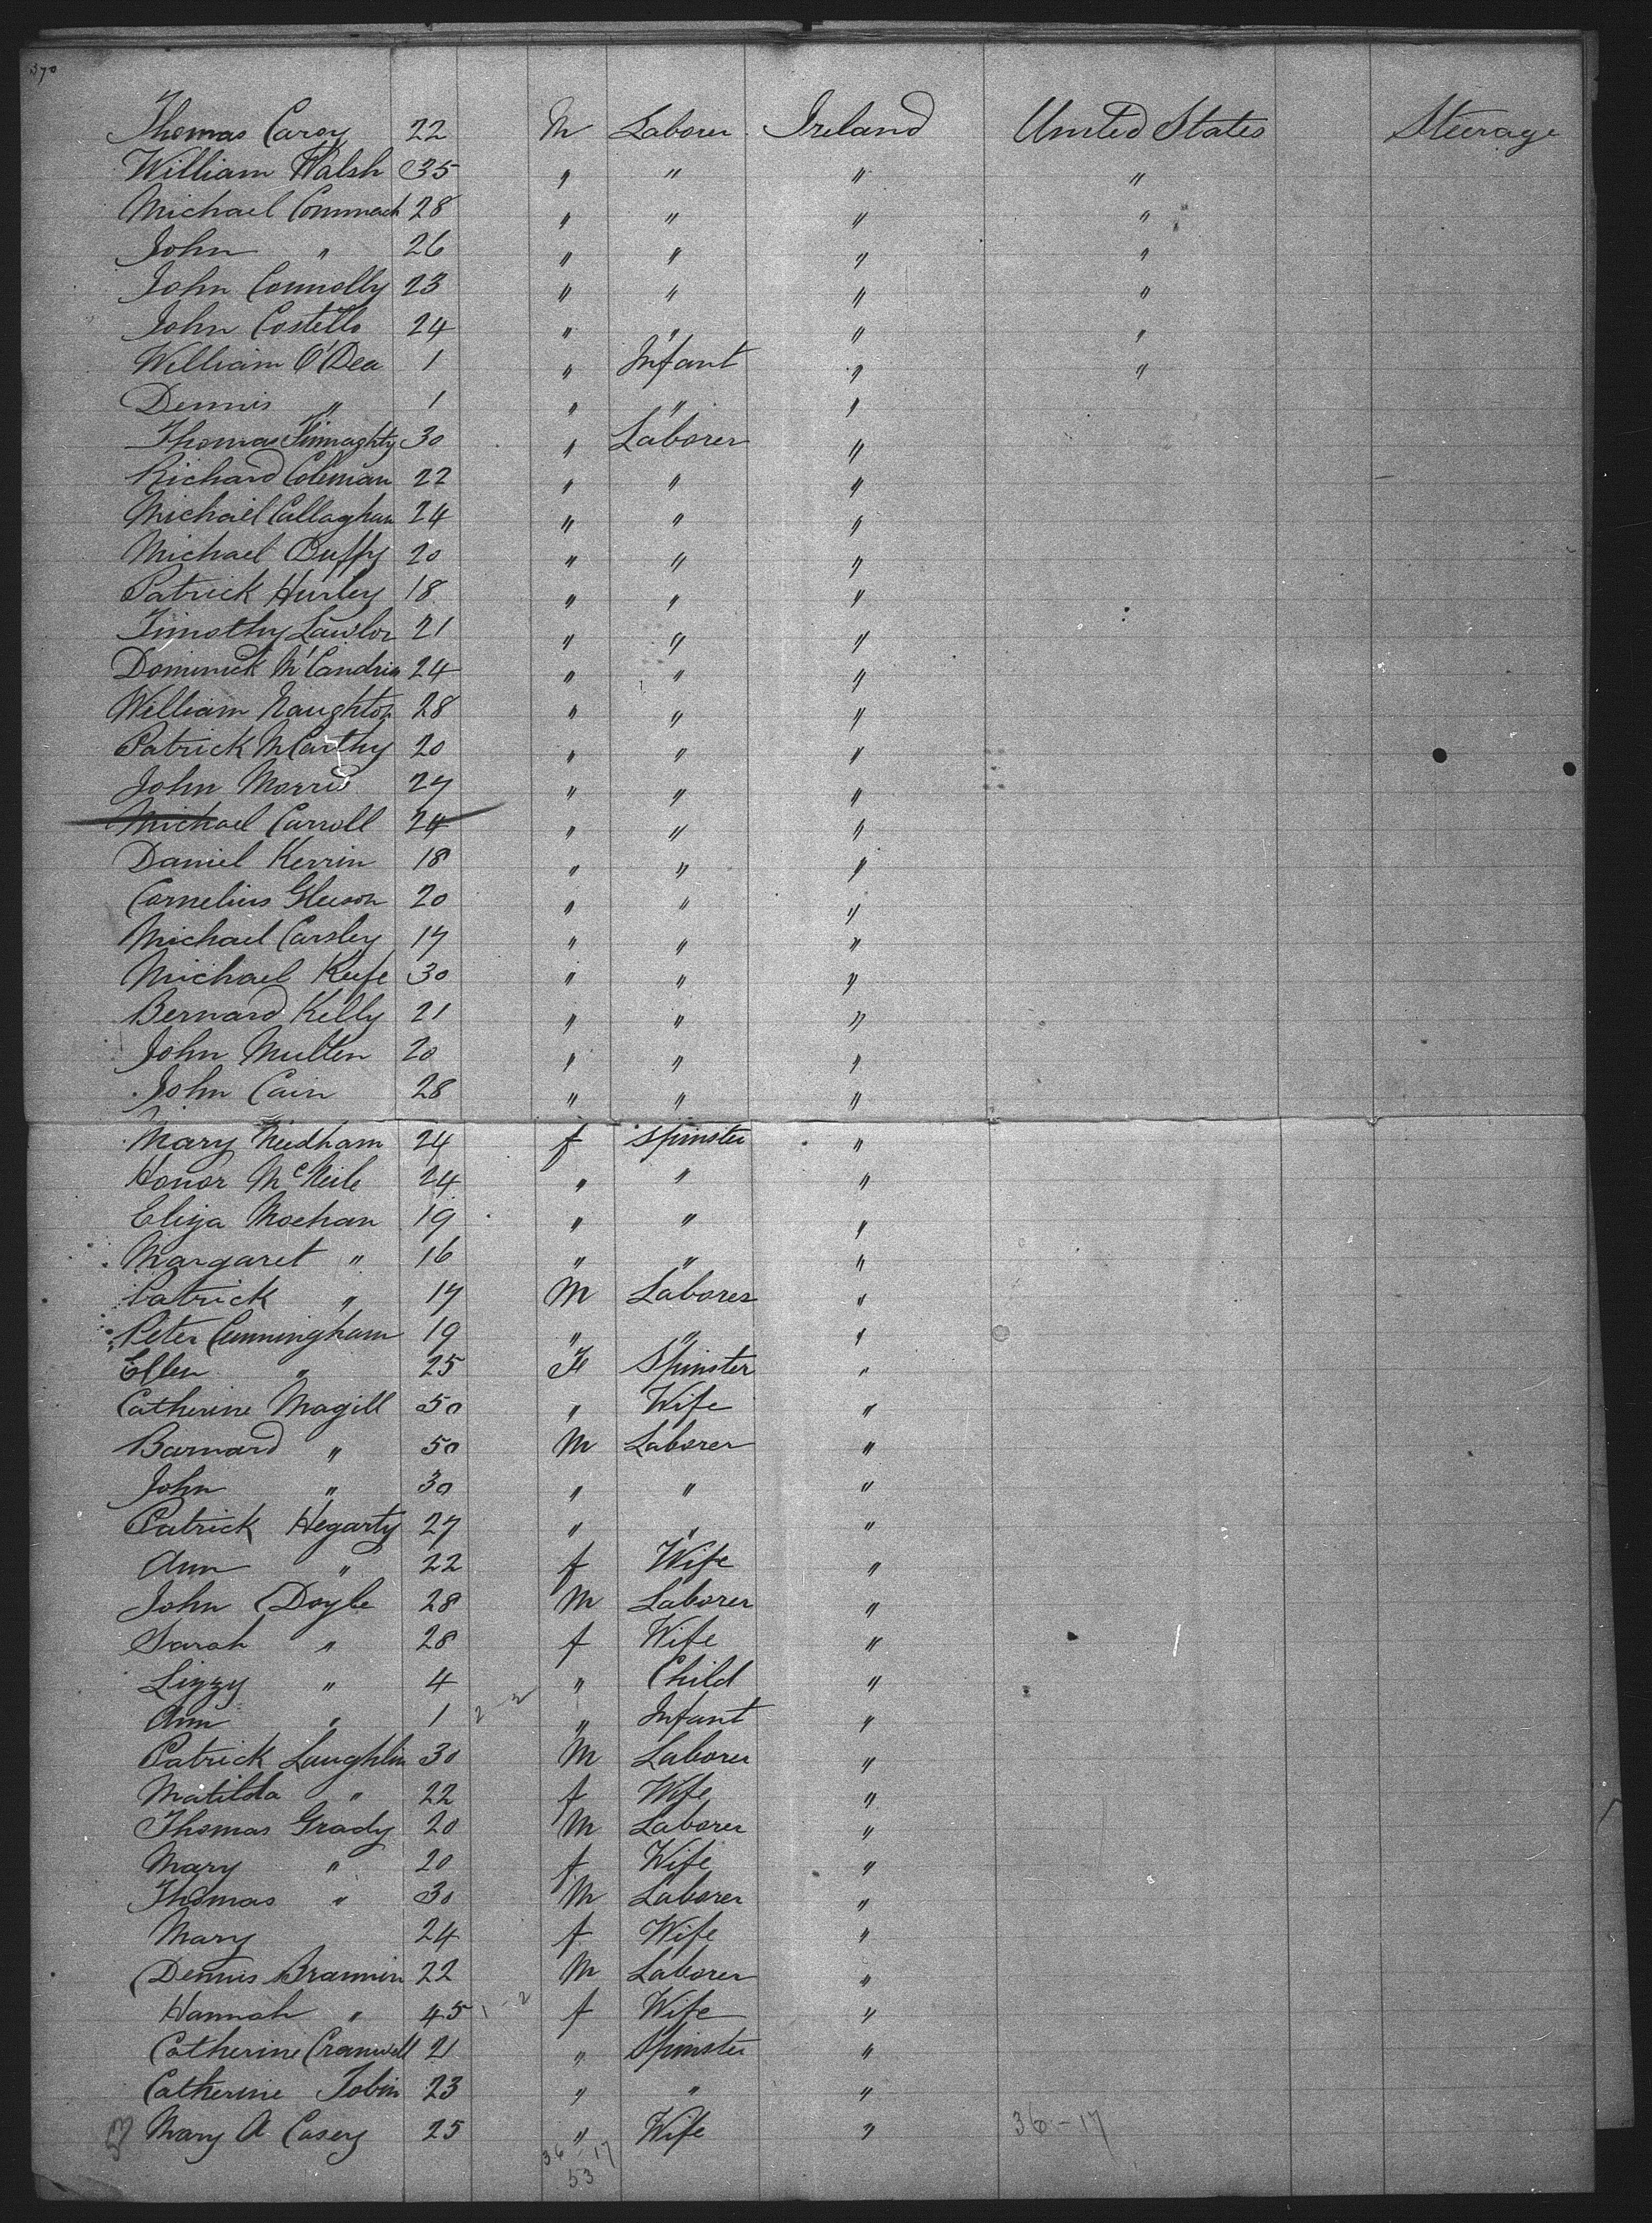 370
Thomas Carey 22 M Laborer Ireland United States Steerage
William Walsh 35 " " " "
Michael Commack 28 " " " "
John " 26 " " " "
John Connolly 23 " " " "
John Costello 24 " " " "
William O'Dea 1 " Infant " "
Dennis " 1 " " "
Thomas Finnaghty 30 " Laborer "
Richard Coleman 22 " " "
Michael Callaghan 24 " " "
Michael Duffy 20 " " "
Patrick Hurley 18 " " "
Timothy Lawlor 21 " " "
Dominick 24 " " "
William Naughton 28 " " "
Patrick McCarthy 20 " " "
John Morris 27 " " "
Michael Carroll 24 " " "
Daniel Kerrin 18 " " "
Cornelius Gleeson 20 " " "
Michael Carsley 17 " " "
Michael Keefe 30 " " "
Bernard Kelly 21 " " "
John Mullen 20 " " "
John Cain 28 " " "
Mary Needham 24 f Spinster "
Honor McNeile 24 " " "
Eliza Moehan 19 " " "
Margaret " 16 " " "
Patrick " 17 M Laborer "
Peter Cunningham 19 " " "
Ellen " 25 F Spinster "
Catherine Magill 50 " Wife "
Barnard " 50 M Laborer "
John " 30 " " "
Patrick Hegarty 27 " " "
Ann " 22 f Wife "
John Doyle 28 M Laborer "
Sarah " 28 f Wife "
Lizzy " 4 " Child "
Ann " 1 " Infant "
Patrick Laughlin 30 M Laborer "
Matilda " 22 f Wife "
Thomas Grady 20 M Laborer "
Mary " 20 f Wife "
Thomas " 30 M Laborer "
Mary 24 f Wife "
Dennis Brannin 22 M Laborer "
Hannah " 45 1-2 f Wife "
Catherine Cranwell 21 " Spinster "
Catherine Tobin 23 " " "
Mary A Casey 25 " Wife " 36-17
36 17
53